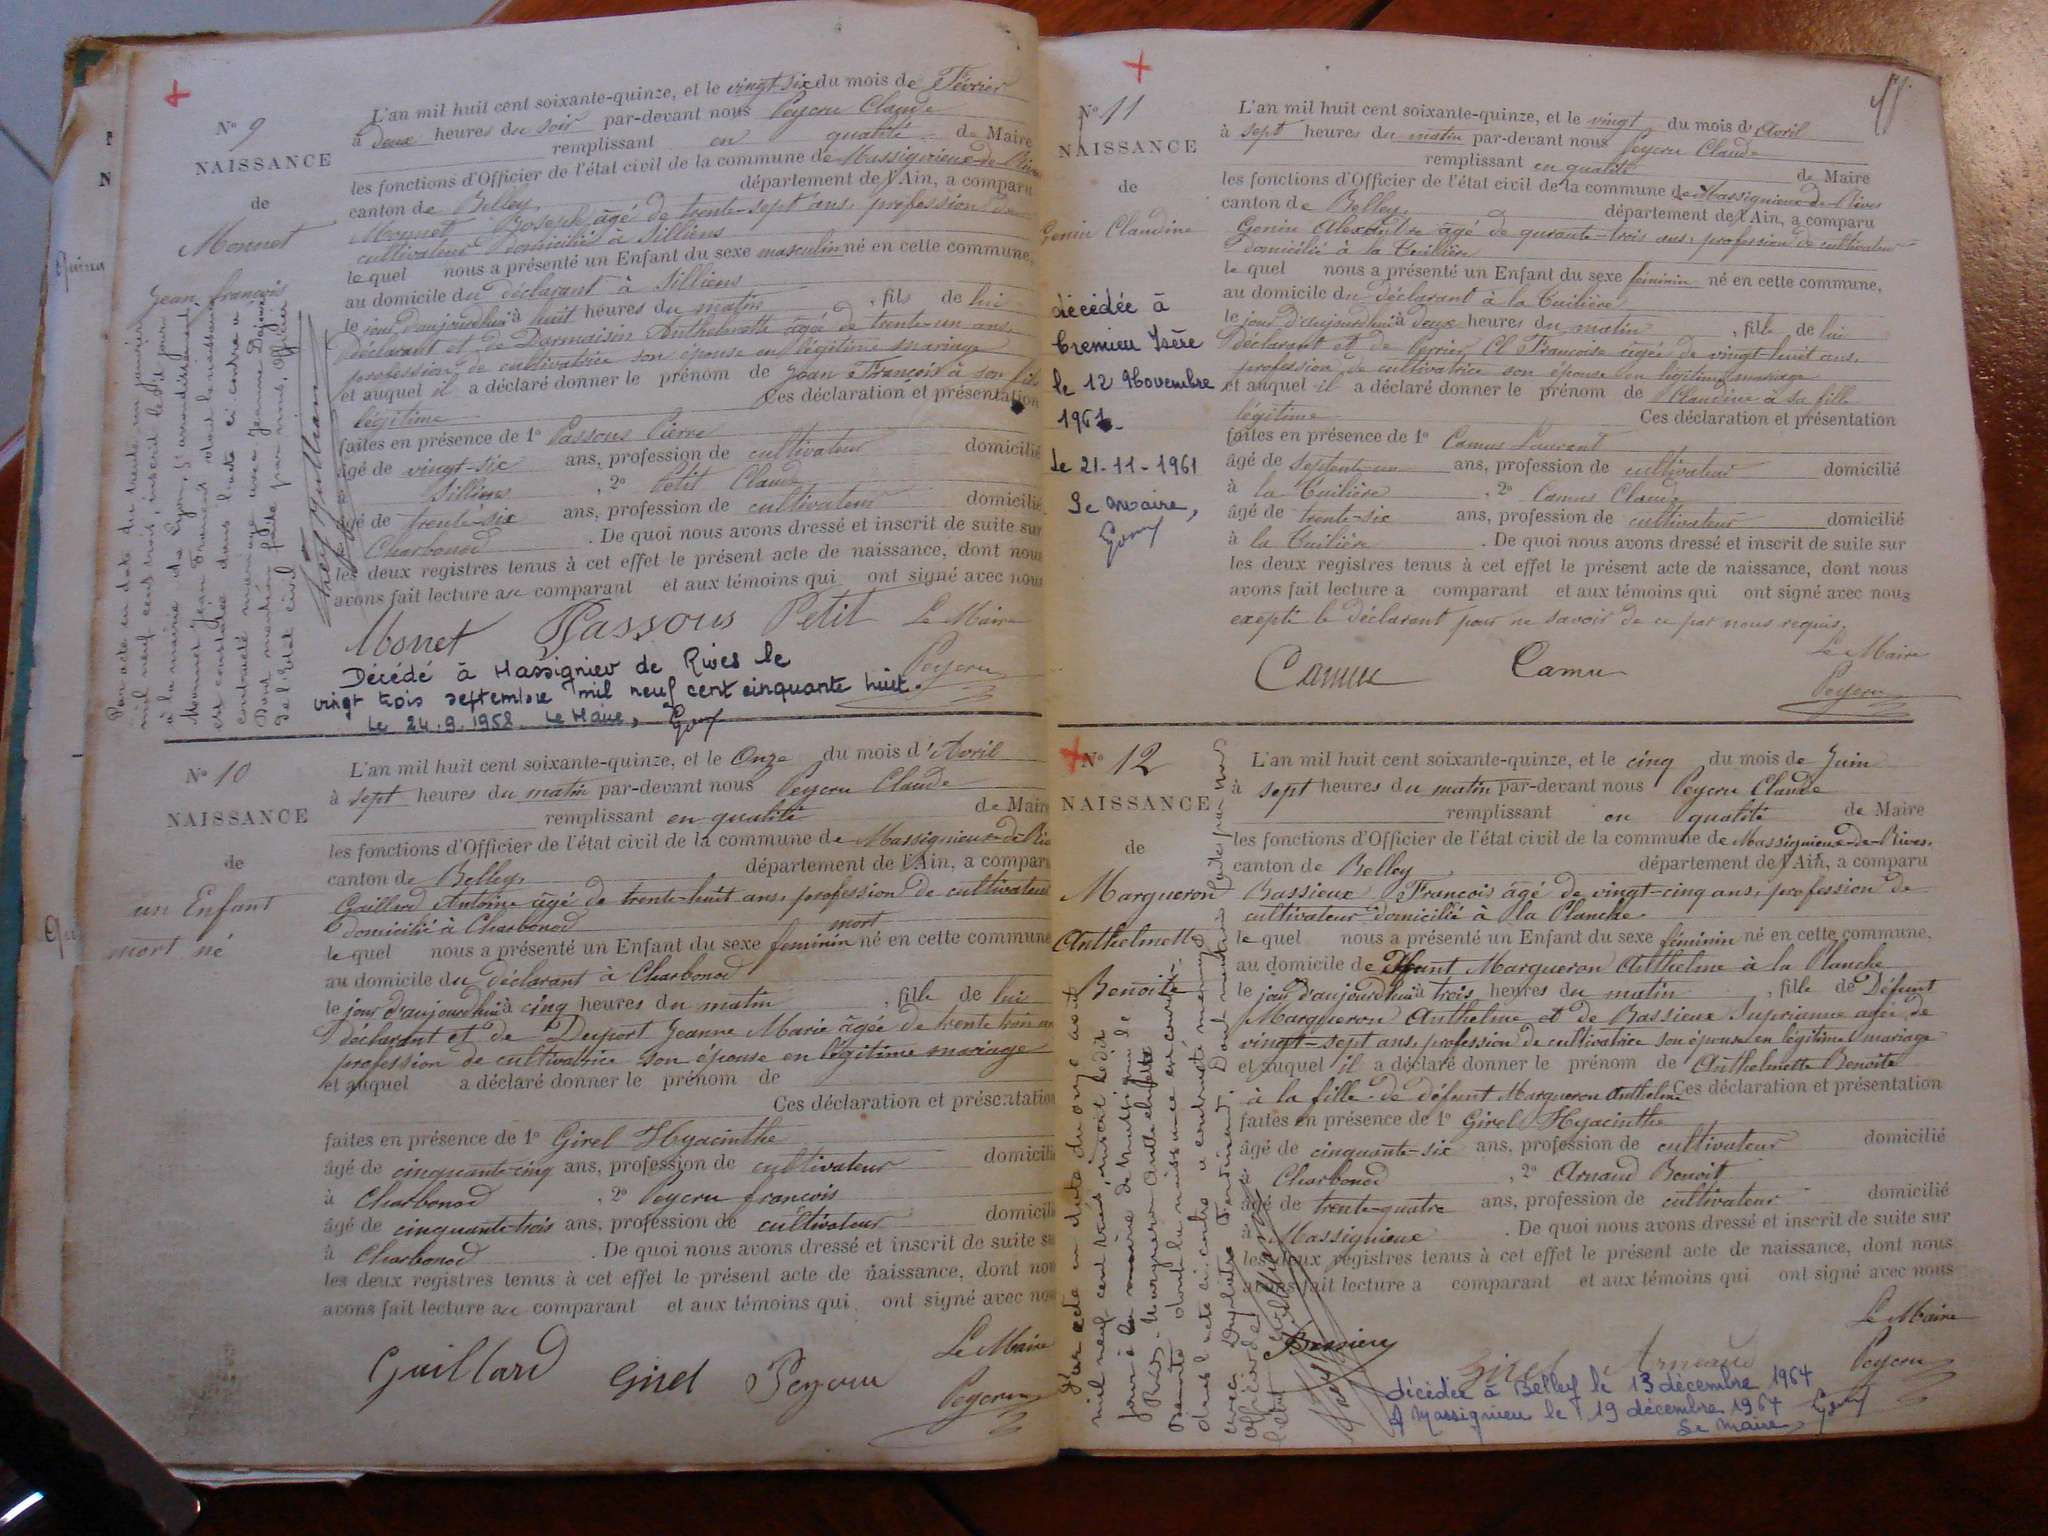 N° 9
NAISSANCE
de
Monnet
Jean François
L'an mil huit cent soixante-quinze, et le vingt-six du mois de Février
à deux heures du soir par-devant nous Peycru Claude
remplissant en qualité de Maire
les fonctions d'Officier de l'état civil de la commune de Massignieux-de-Rives
canton de Belley département de l'Ain, a comparu
Monnet Joseph âgé de trente-sept ans, profession de
cultivateur domicilié à Silliens
le quel nous a présenté un Enfant du sexe masculin né en cette commune,
au domicile du déclarant à Silliens
le jour d'aujourd'hui à huit heures du matin, fils de lui
déclarant et de Dormaisin Anthelmette âgée de trente-un ans,
profession de cultivatrice son épouse en légitime mariage
et auquel il a déclaré donner le prénom de Jean François à son fils
légitime Ces déclaration et présentation
faites en présence de 1° Passous Pierre
âgé de vingt-six ans, profession de cultivateur domicilié
Silliens, 2° Petit Claude
âgé de trente-six ans, profession de cultivateur domicilié
Charbonod. De quoi nous avons dressé et inscrit de suite sur
les deux registres tenus à cet effet le présent acte de naissance, dont nous
avons fait lecture au comparant et aux témoins qui ont signé avec nous
Monnet Passous Petit Le Maire
Peycru
Décédé à Massignieu de Rives le
vingt trois septembre mil neuf cent cinquante huit.
Le 24.9.1958 Le Maire,
Par acte en date du trente un janvier
mil neuf cent trois, inscrit le dit jour
à la mairie de Lyon, 5e arrondissement
Monnet Jean François dont la naissance
est constatée dans l'acte ci contre a
contracté mariage avec Jeanne
Dont mention faite par nous, Officier
de l'Etat civil
N° 10
NAISSANCE
de
un Enfant
mort né
L'an mil huit cent soixante-quinze, et le Onze du mois d'Avril
à sept heures du matin par-devant nous Peycru Claude
remplissant en qualité de Maire
les fonctions d'Officier de l'état civil de la commune de Massignieux-de-Rives
canton de Belley département de l'Ain, a comparu
Gaillard Antoine âgé de trente-huit ans, profession de cultivateur
domicilié à Charbonod mort
le quel nous a présenté un Enfant du sexe féminin né en cette commune
au domicile du déclarant à Charbonod
le jour d'aujourd'hui à cinq heures du matin, fille de lui
déclarant et de Duport Jeanne Marie âgée de trente trois ans
profession de cultivatrice son épouse en légitime mariage
et auquel a déclaré donner le prénom de
Ces déclaration et présentation
faites en présence de 1° Girel Hyacinthe
âgé de cinquante-cinq ans, profession de cultivateur domicilié
à Charbonod, 2° Peycru François
âgé de cinquante-trois ans, profession de cultivateur domicilié
à Charbonod. De quoi nous avons dressé et inscrit de suite sur
les deux registres tenus à cet effet le présent acte de naissance, dont nous
avons fait lecture au comparant et aux témoins qui ont signé avec nous
Le Maire
Gaillard Girel Peycru Peycru
N° 11
NAISSANCE
de
Genin Claudine
L'an mil huit cent soixante-quinze, et le vingt du mois d'Avril
à sept heures du matin par-devant nous Peycru Claude
remplissant en qualité de Maire
les fonctions d'Officier de l'état civil de la commune de Massignieux-de-Rives
canton de Belley département de l'Ain, a comparu
Genin Alexandre âgé de quarante-trois ans, profession de cultivateur
domicilié à la Tuilière
le quel nous a présenté un Enfant du sexe féminin né en cette commune,
au domicile du déclarant à la Tuilière
le jour d'aujourd'hui à deux heures du matin, fille de lui
déclarant et de Perrier Françoise âgée de vingt huit ans,
profession de cultivatrice son épouse en légitime mariage
et auquel il a déclaré donner le prénom de Claudine à sa fille
légitime Ces déclaration et présentation
faites en présence de 1° Camus Laurent
âgé de septente-un ans, profession de cultivateur domicilié
à la Tuilière, 2° Camus Claude
âgé de trente-six ans, profession de cultivateur domicilié
à la Tuilière. De quoi nous avons dressé et inscrit de suite sur
les deux registres tenus à cet effet le présent acte de naissance, dont nous
avons fait lecture a comparant et aux témoins qui ont signé avec nous
exepté le déclarant pour ne savoir de ce par nous requis.
Le Maire
Camus Camus Peycru
décédée à
Cremieu Isère
le 12 Novembre
1961.
Le 21-11-1961
Le Maire,
N° 12
NAISSANCE
de
Margueron
Anthelmette
Benoite
L'an mil huit cent soixante-quinze, et le cinq du mois de Juin
à sept heures du matin par-devant nous Peycru Claude
remplissant en qualité de Maire
les fonctions d'Officier de l'état civil de la commune de Massignieux-de-Rives.
canton de Belley département de l'Ain, a comparu
Bassieux François âgé de vingt-cinq ans, profession de
cultivateur domicilié à la Planche
le quel nous a présenté un Enfant du sexe féminin né en cette commune,
au domicile de défunt Margueron Anthelme à la Planche
le jour d'aujourd'hui à trois heures du matin, fille de Défunt
Margueron Anthelme et de Bassieux agée de
vingt-sept ans, profession de cultivatrice son épouse en légitime mariage
et auquel il a déclaré donner le prénom de Anthelmette Benoite
à la fille de défunt Margueron Anthelme Ces déclaration et présentation
faites en présence de 1° Girel Hyacinthe
âgé de cinquante-six ans, profession de cultivateur domicilié
à Charbonod, 2° Arnaud Benoit
âgé de trente-quatre ans, profession de cultivateur domicilié
à Massignieux. De quoi nous avons dressé et inscrit de suite sur
les deux registres tenus à cet effet le présent acte de naissance, dont nous
avons fait lecture a comparant et aux témoins qui ont signé avec nous
Le Maire
Bassieux Girel Arnaud Peycru
décédée à Belley le 13 décembre 1964
A Massignieu le 19 décembre 1964
Le Maire
Par acte en date du onze août
mil neuf cent trois, inscrit le dit
jour à la mairie de Massignieu de
Rives, Margueron Anthelmette
Benoite dont la naissance est constatée
dans l'acte ci-contre a contracté mariage
avec Ferdinand. Dont mention faite par nous